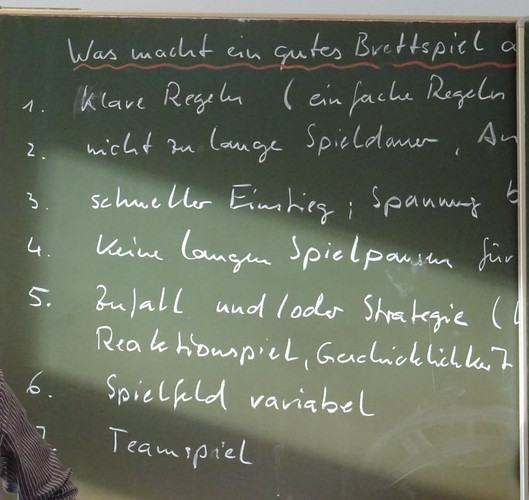 Was macht ein gutes Brettspiel a
1. Klare Regeln ( einfache Regeln
2. nicht zu lange Spieldauer, An
3. schneller Einstieg ; Spannung b
4. Keine langen Spielpausen für
5. Zufall und/oder Strategie (
Reaktionspiel, Geschicklichkeit
6. Spielfeld variabel
7. Teamspiel